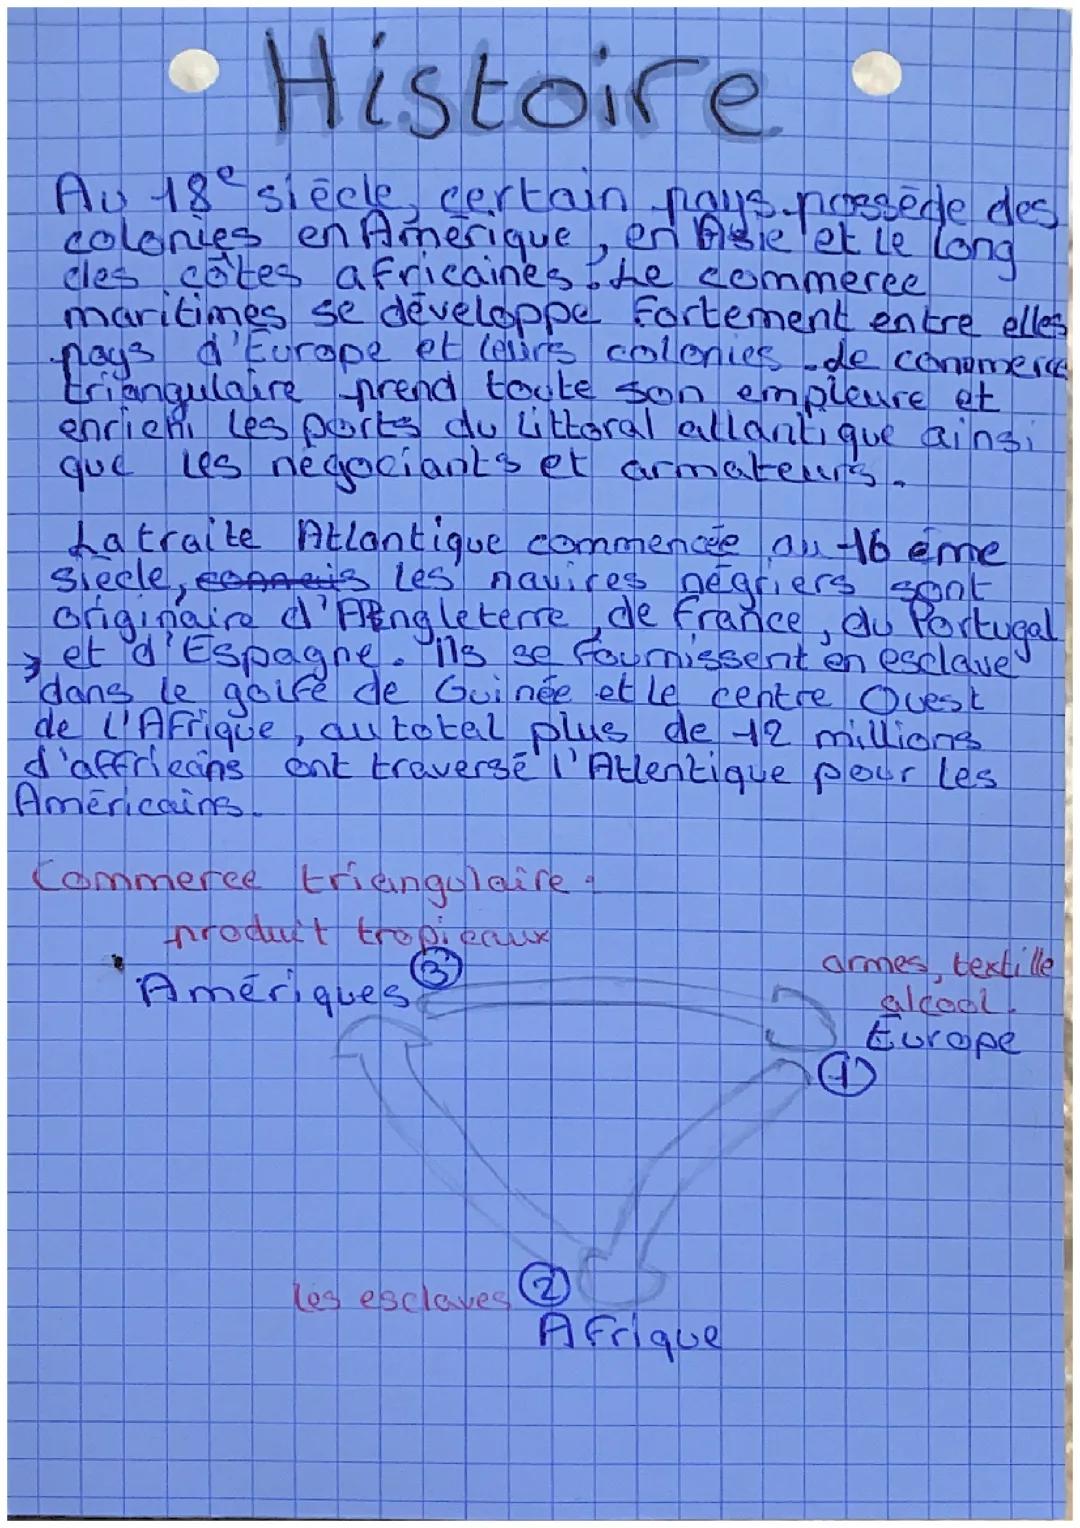 Histoire
Au 18e siècle, certain pays possède des
colonies en Amérique, en Asie et le long
des côtes africaines. Le commerce
maritimes se développe fortement entre elles
pays d'Europe et leurs colonies. de commerce
triangulaire prend toute son empleure et
enrichi les ports du littoral atlantique ainsi
que les négociants et armateurs.
La traite Atlantique commencée au 16 éme
siècle, connais les navires négriers sont
originaire d'Angleterre, de france, du Portugal
et d'Espagne. ils se fournissent en esclave
dans le golfe de Guinée et le centre Ouest
de l'Afrique, au total plus de 12 millions
d'affricains ont traversé l'Atlentique pour les
Américains.
Commerce triangulaire :
produit tropicaux
armes, textille
Amériques 3
alcool.
Europe
1
les esclaves 2
Afrique